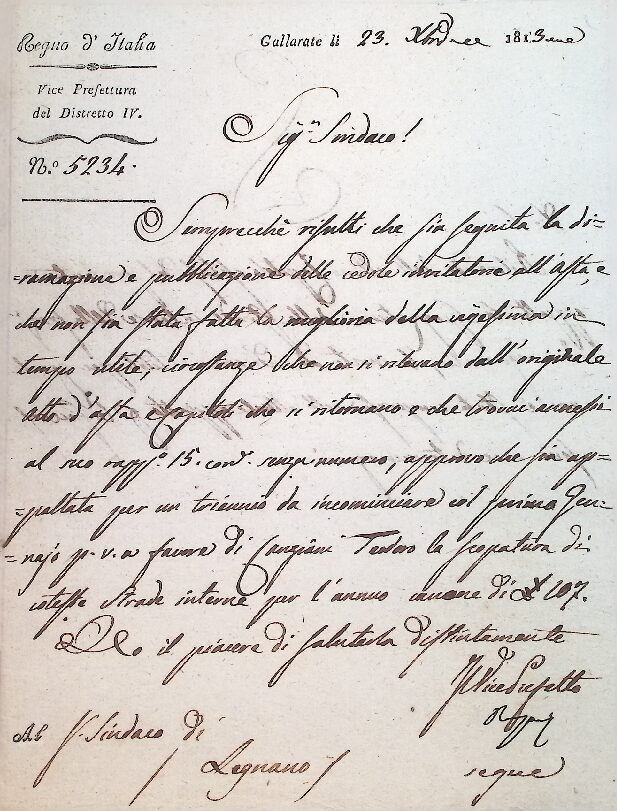 Regno d'Italia
Gallarate li 23. Xbre 1813
Vice Prefettura
del Distretto IV.
N.º 5234.
Sig.r Sindaco!
Semprecchè risulti che sia seguita la di=
=ramazione e pubblicazione delle cedole invitatorie all'Asta, e
che non sia stata fatta la miglioria della vigesima in
tempo utile, circostanze che non si rilevano dall'originale
atto d'asta e Capitoli che si ritornano e che trovai annessi
al suo rapp.º 15. corr. senza numero, approvo che sia ap=
=paltata per un triennio da incominciare col primo Gen=
=najo p. v. a favore di Canziani Teodoro la scopatura di
coteste strade interne per l'annuo canone di £ 107.
Ho il piacere di salutarla distintamente
Il Vice Prefetto
Al S.r Sindaco di
Legnano
segue